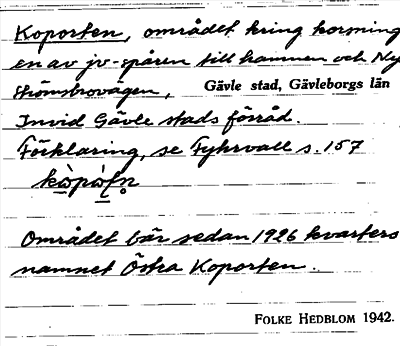 Koporten, området kring korsning
en av jv-spåren till hamnen och Ny
Strömsbrovägen, Gävle stad, Gävleborgs län
Invid Gävle stads förråd.
Förklaring, se Fyhrvall s. 157
Området bär sedan 1926 kvarters
namnet Östra Koporten.
FOLKE HEDBLOM 1942.